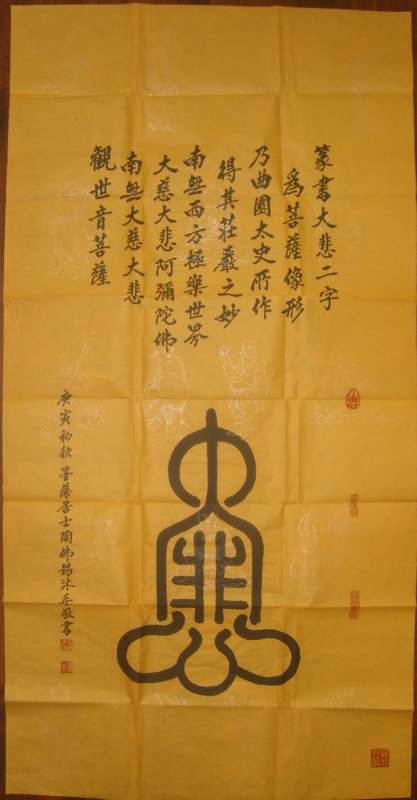 篆書大悲二字
爲菩薩像形
乃曲園太史所作
得其莊嚴之妙
南無西方極樂世界
大慈大悲阿彌陀佛
南無大慈大悲
觀世音菩薩
大悲
庚寅初秋 墨居士佛錫沐手敬書